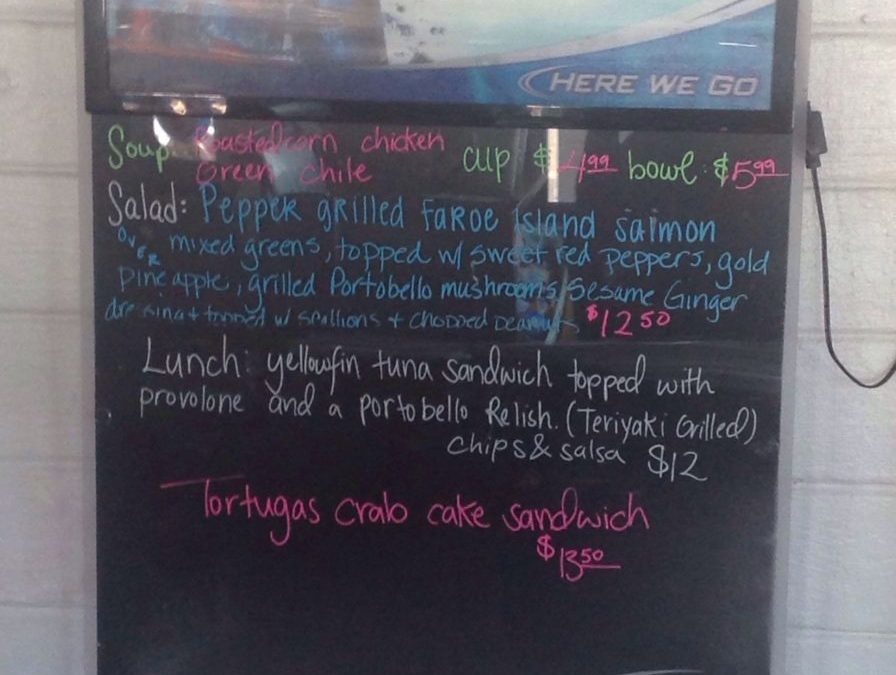 HERE WE GO
Soup: Roasted corn chicken
Green chile cup $4.99 bowl: $5.99
Salad: Pepper grilled Faroe Island Salmon
over mixed greens, topped w/ sweet red peppers, gold
Pineapple, grilled Portobello mushrooms, Sesame Ginger
dressing + topped w/ scallions + chopped peanuts $12.50
Lunch: yellowfin tuna sandwich topped with
provolone and a portobello Relish. (Teriyaki Grilled)
chips & salsa $12
Tortugas crab cake sandwich
$13.50